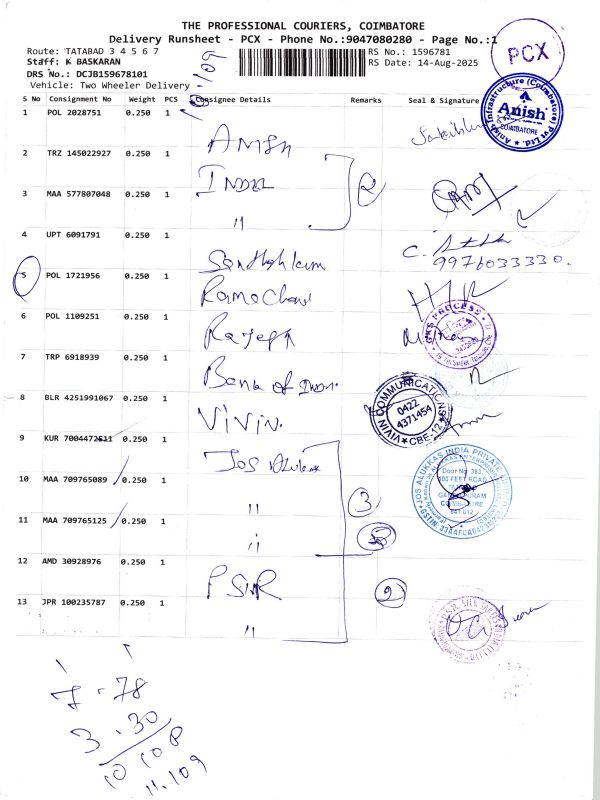 THE PROFESSIONAL COURIERS, COIMBATORE
Delivery Runsheet - PCX - Phone No.:9047080280 - Page No.:1
Route: TATABAD 3 4 5 6 7
RS No.: 1596781
Staff: K BASKARAN
RS Date: 14-Aug-2025
DRS No.: DCJB159678101
Vehicle: Two Wheeler Delivery
PCX
109
S No Consignment No Weight PCS Consignee Details Remarks Seal & Signature
1 POL 2028751 0.250 1 Anish
Anish Infrastructure (Coimbatore) Pvt Ltd. Anish COIMBATORE
2 TRZ 145022927 0.250 1 2
3 MAA 577807048 0.250 1 "
4 UPT 6091791 0.250 1
9976033330.
5 POL 1721956 0.250 1
6 POL 1109251 0.250 1 Rajesh
GKS PROCESS
7 TRP 6918939 0.250 1 Bank of
8 BLR 4251991067 0.250 1 Vivin.
VIVIN COMMUNICATIONS 0422 4371454 CBE-12
9 KUR 7004472511 0.250 1 Jos Alukkas
10 MAA 709765089 0.250 1 " 3
JOS ALUKKAS INDIA PRIVATE Door No: 383, 100 FEET ROAD COIMBATORE 641 012
11 MAA 709765125 0.250 1 "
12 AMD 30928976 0.250 1 PSNR 2
13 JPR 100235787 0.250 1 "
7 - 78
3 - 30
10 108
11.109